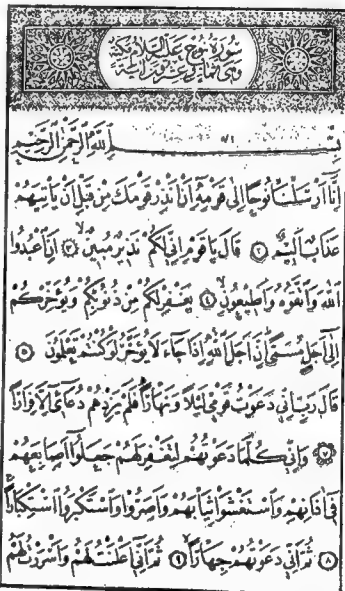 سورة نوح عليه السلام مكية
وهي ثماني وعشرون آية
بسم الله الرحمن الرحيم
انا ارسلنا نوحا الى قومه ان انذر قومك من قبل ان ياتيهم
عذاب اليم ٢ قال يا قوم اني لكم نذير مبين ٣ ان اعبدوا
الله واتقوه واطيعون ٤ يغفر لكم من ذنوبكم ويؤخركم
الى اجل مسمى ان اجل الله اذا جاء لا يؤخر لو كنتم تعلمون ٥
قال رب اني دعوت قومي ليلا ونهارا فلم يزدهم دعائي الا فرارا
٧ واني كلما دعوتهم لتغفر لهم جعلوا اصابعهم
في اذانهم واستغشوا ثيابهم واصروا واستكبروا استكبارا
٨ ثم اني دعوتهم جهارا ٩ ثم اني اعلنت لهم واسررت لهم